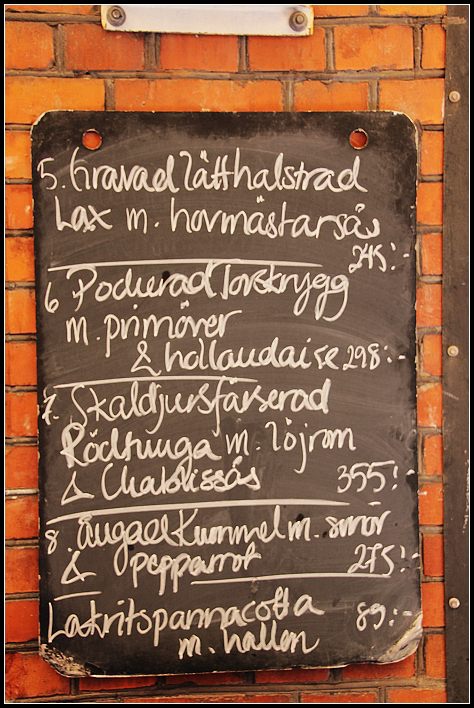 5. Gravad lätthalstrad
Lax m. hovmästarsås
245:-
6 Pocherad Torskrygg
m. primörer
& hollandaise 298:-
7. Skaldjursfärserad
Rödtunga m. löjrom
& Chablissås 355:-
8. Ångad Kummel m. smör
& pepparrot 275:-
Lakritspannacotta 89:-
m. hallon